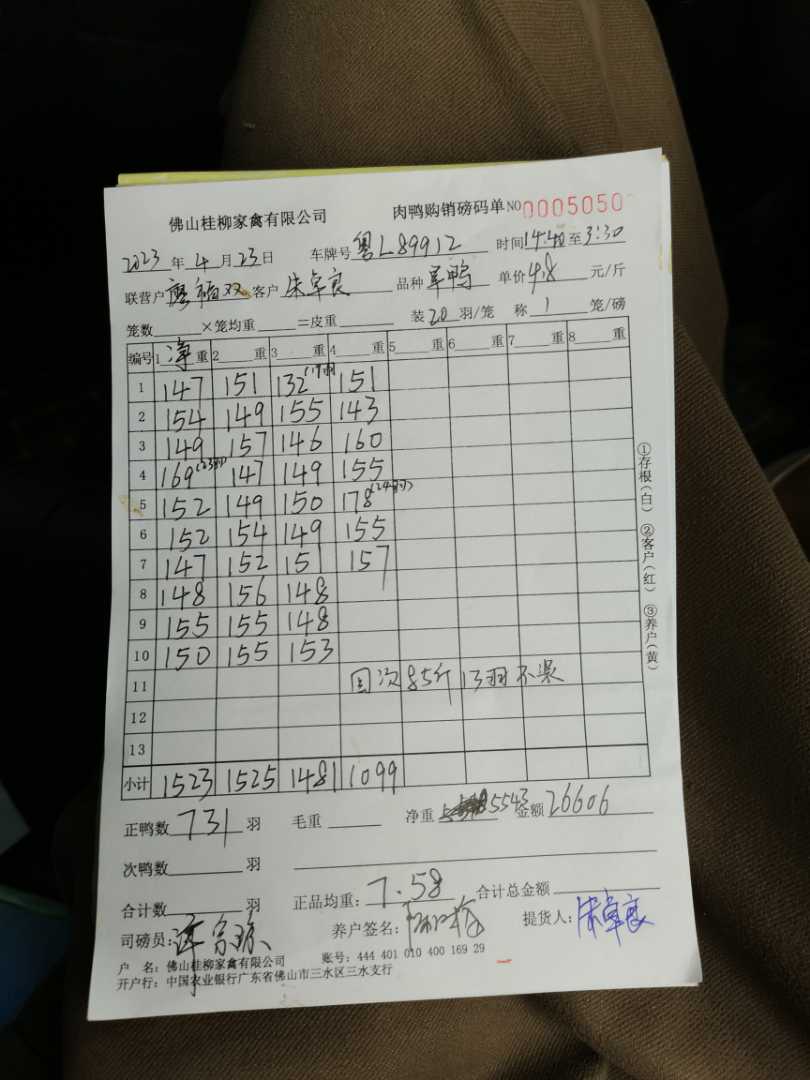 佛山桂柳家禽有限公司 肉鸭购销磅码单 NO 0005050
2023 年 4 月 23 日 车牌号 粤L89912 时间 14:40 至 3:30
联营户 双 客户 朱卓良 品种 鸭 单价 4.8 元/斤
笼数 ×笼均重 =皮重 装 20 羽/笼 称 1 笼/磅
编号 1 净 重 2 重 3 重 4 重 5 重 6 重 7 重 8 重
1 147 151 132(19羽) 151
2 154 149 155 143
3 149 157 146 160
4 169(23羽) 147 149 155
5 152 149 150 178(24羽)
6 152 154 149 155
7 147 152 151 157
8 148 156 148
9 155 155 148
10 150 155 153
11 次85斤 13羽不
12
13
小计 1523 1525 1481 1099
正鸭数 731 羽 毛重 净重 5543 金额 26606
次鸭数 羽
合计数 羽 正品均重: 7.58 合计总金额
司磅员: 养户签名: 提货人: 朱卓良
户 名: 佛山桂柳家禽有限公司 账号: 444 401 010 400 169 29
开户行: 中国农业银行广东省佛山市三水区三水支行
①存根(白) ②客户(红) ③养户(黄)